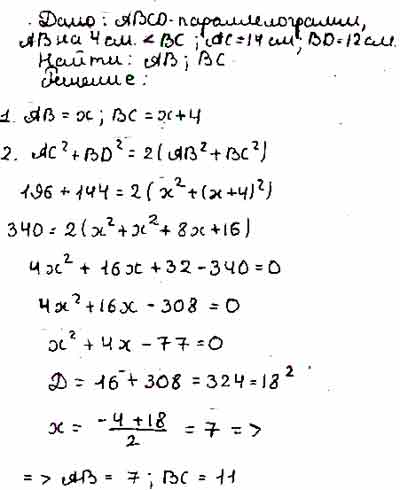 Дано: ABCD-параллелограмм,
AB на 4 см. < BC ; AC=14 см; BD=12 см.
Найти: AB; BC
Решение:
1. AB = x; BC = x+4
2. AC² + BD² = 2(AB² + BC²)
196 + 144 = 2(x² + (x+4)²)
340 = 2(x² + x² + 8x + 16)
4x² + 16x + 32 - 340 = 0
4x² + 16x - 308 = 0
x² + 4x - 77 = 0
D = 16 + 308 = 324 = 18²
x = (-4 + 18)/2 = 7 =>
=> AB = 7 ; BC = 11